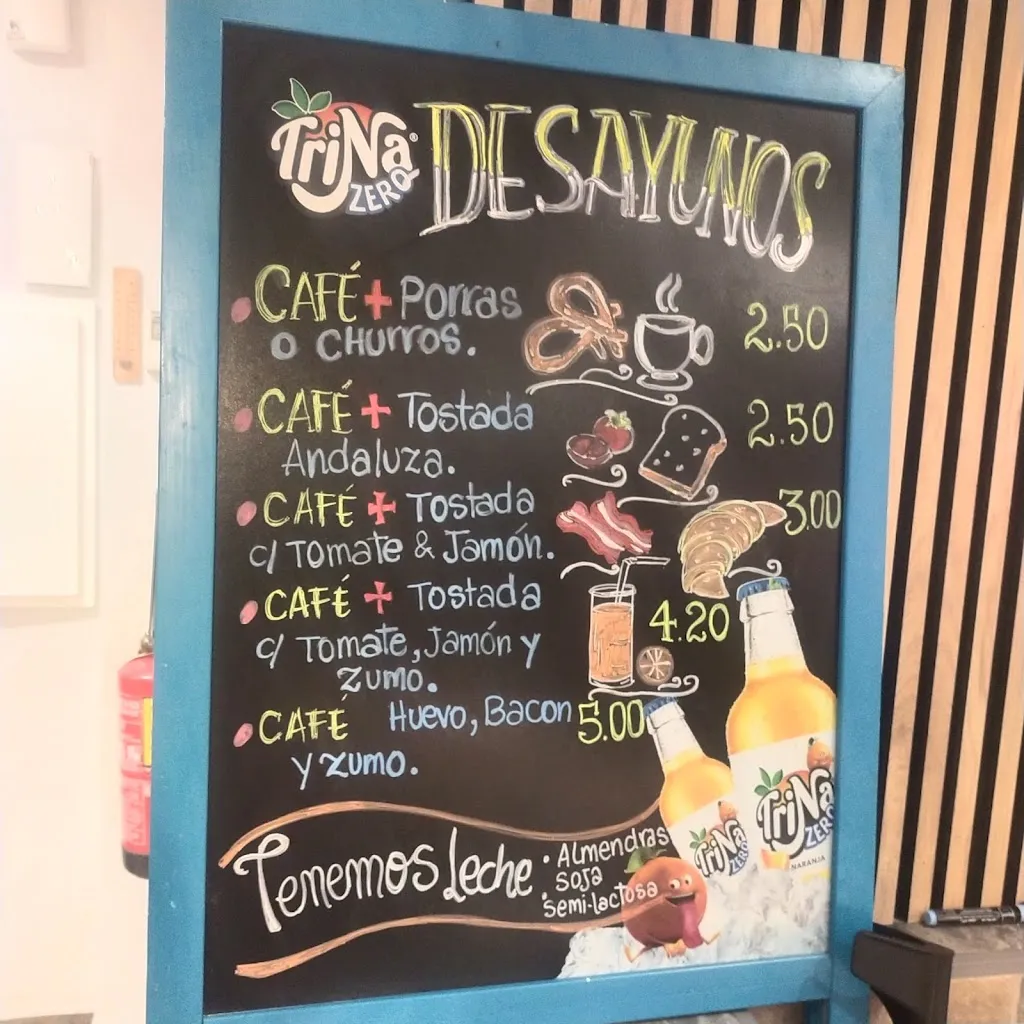 TriNa ZERO DESAYUNOS
CAFÉ + Porras 2.50
o CHURROS.
CAFÉ + Tostada 2.50
Andaluza.
CAFÉ + Tostada 3.00
c/ Tomate & Jamón.
CAFÉ + Tostada 4.20
c/ Tomate, Jamón y
Zumo.
CAFÉ Huevo, Bacon 5.00
y zumo.
Tenemos Leche
• Almendras
• SOJA
• semi-lactosa
TriNa ZERO
TriNa ZERO
NARANJA